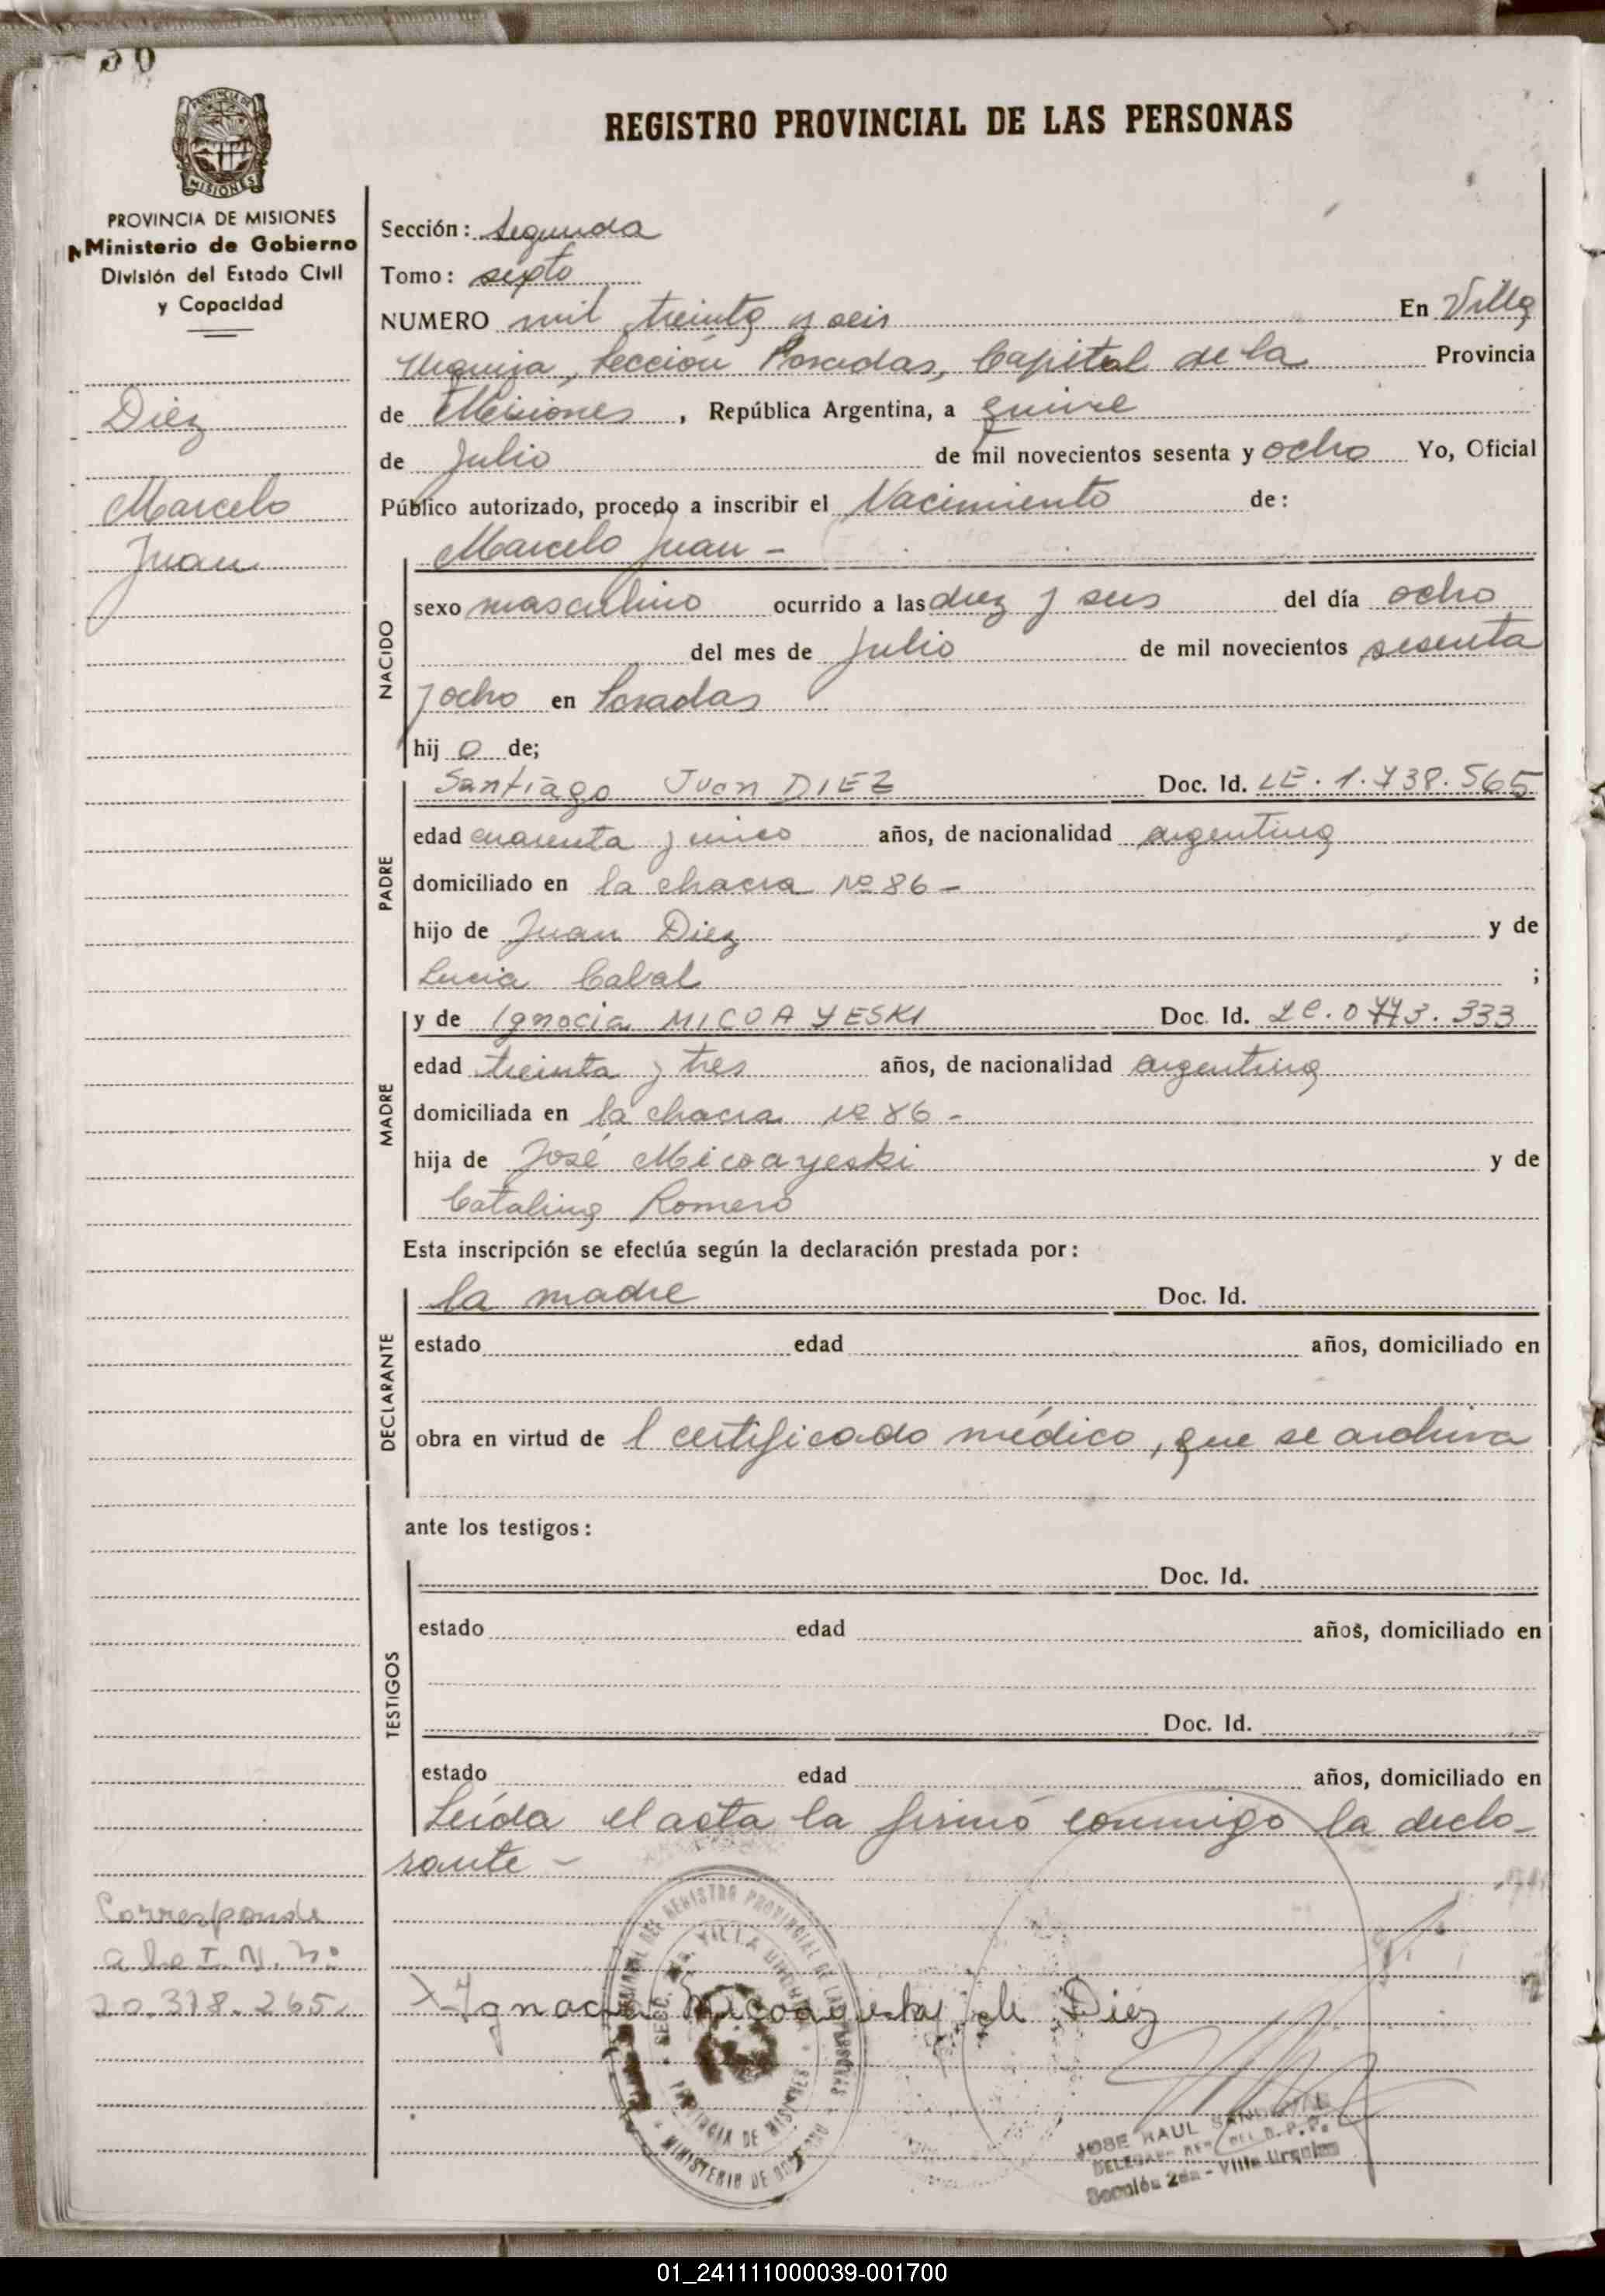 50
REGISTRO PROVINCIAL DE LAS PERSONAS
PROVINCIA DE
MISIONES
PROVINCIA DE MISIONES
Ministerio de Gobierno
División del Estado Civil
y Capacidad
Diez
Marcelo
Juan
Sección: Segunda
Tomo: sexto
NUMERO mil treinta y seis En Villa
Urquiza, Sección Posadas, Capital de la Provincia
de Misiones, República Argentina, a quince
de Julio de mil novecientos sesenta y ocho Yo, Oficial
Público autorizado, procedo a inscribir el Nacimiento de:
Marcelo Juan -
NACIDO
sexo masculino ocurrido a las diez y seis del día ocho
del mes de Julio de mil novecientos sesenta
y ocho en Posadas
hijo de;
PADRE
Santiago Juan DIEZ Doc. Id. LE. 1.738.565
edad cuarenta y cinco años, de nacionalidad argentina
domiciliado en la chacra Nº 86 -
hijo de Juan Diez y de
Lucia Cabal ;
MADRE
y de Ignacia MICOAYESKI Doc. Id. LC. 0.773.333
edad treinta y tres años, de nacionalidad argentina
domiciliada en la chacra Nº 86 -
hija de José Micoayeski y de
Catalina Romero
Esta inscripción se efectúa según la declaración prestada por:
DECLARANTE
la madre Doc. Id.
estado edad años, domiciliado en
obra en virtud de l certificado médico, que se archiva
ante los testigos:
TESTIGOS
Doc. Id.
estado edad años, domiciliado en
Doc. Id.
estado edad años, domiciliado en
Leída el acta la firmó conmigo la decla-
rante -
Corresponde
a la I. N. Nº
20.378.265
Ignacia Micoayeski de Diéz
REGISTRO PROVINCIAL DE LAS PERSONAS
SECC. VILLA URQUIZA
PROVINCIA DE MISIONES
MINISTERIO DE GOBIERNO
JOSE RAUL SANDOVAL
Sección 2da - Villa Urquiza
01_241111000039-001700